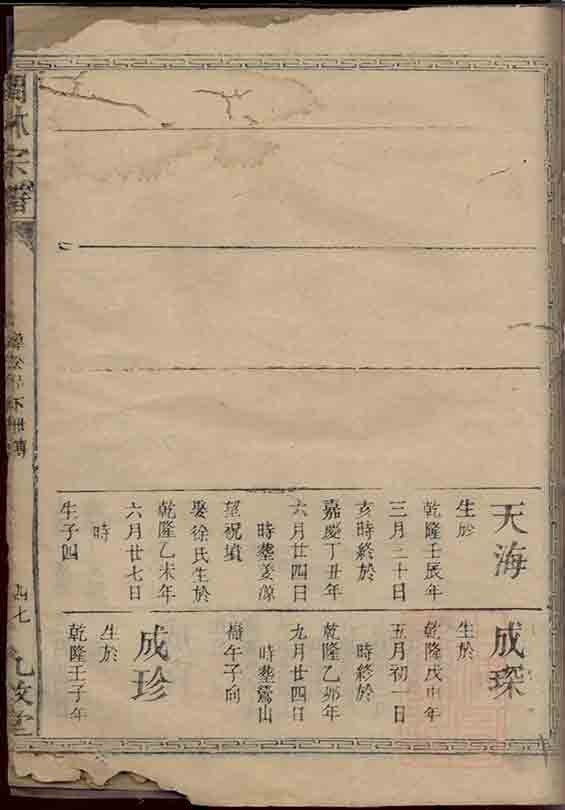 天海
生於
乾隆壬辰年
三月二十日
亥時終於
嘉慶丁丑年
六月廿四日
時塟姜源
望祝墳
娶徐氏生於
乾隆乙未年
六月廿七日
時
生子四
成琛
生於
乾隆戊申年
五月初一日
時終於
乾隆乙卯年
九月廿四日
時塟鶯山
午子向
成珍
生於
乾隆壬子年
林宗譜
四七